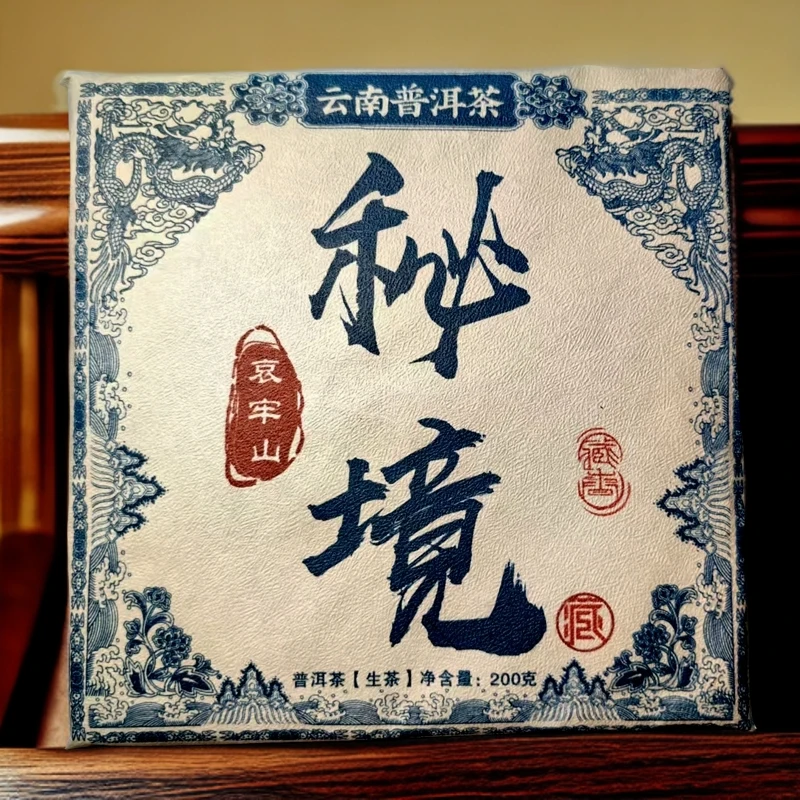 云南普洱茶
秘境
哀牢山
藏香
藏
普洱茶【生茶】净含量：200克